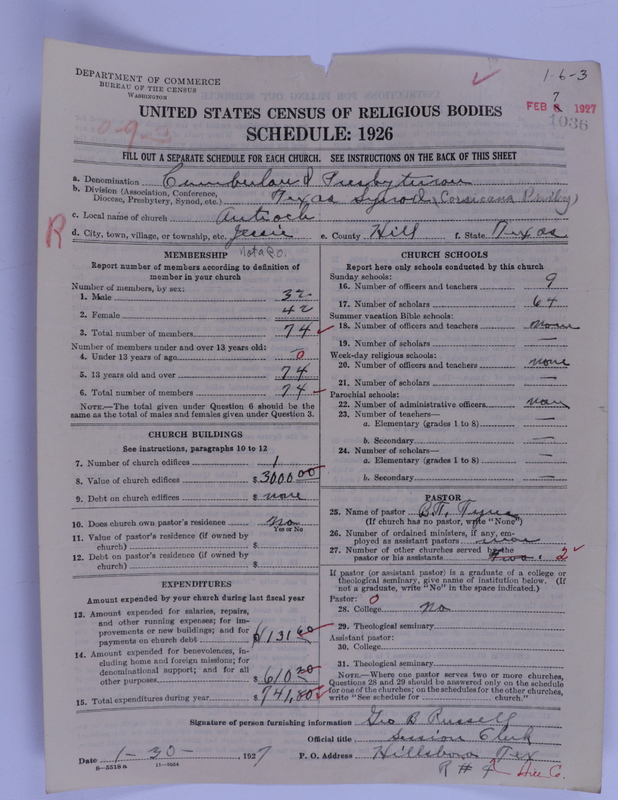 DEPARTMENT OF COMMERCE
BUREAU OF THE CENSUS
WASHINGTON
1-6-3
7
FEB 8 1927
1036
0-9-3
UNITED STATES CENSUS OF RELIGIOUS BODIES
SCHEDULE: 1926
FILL OUT A SEPARATE SCHEDULE FOR EACH CHURCH. SEE INSTRUCTIONS ON THE BACK OF THIS SHEET
a. Denomination Cumberland Presbyterian
b. Division (Association, Conference, Diocese, Presbytery, Synod, etc.) Texas Synod (Corsicana Presby)
c. Local name of church Antioch
R
d. City, town, village, or township, etc. Jessie e. County Hill f. State Texas
Not a P.O.
MEMBERSHIP
Report number of members according to definition of
member in your church
Number of members, by sex:
1. Male 32
2. Female 42
3. Total number of members 74
Number of members under and over 13 years old:
4. Under 13 years of age 0
5. 13 years old and over 74
6. Total number of members 74
NOTE.—The total given under Question 6 should be the
same as the total of males and females given under Question 3.
CHURCH BUILDINGS
See instructions, paragraphs 10 to 12
7. Number of church edifices 1
8. Value of church edifices $3000.00
9. Debt on church edifices $ none
10. Does church own pastor's residence No
Yes or No
11. Value of pastor's residence (if owned by
church) $
12. Debt on pastor's residence (if owned by
church) $
EXPENDITURES
Amount expended by your church during last fiscal year
13. Amount expended for salaries, repairs,
and other running expenses; for im-
provements or new buildings; and for
payments on church debt $131.60
14. Amount expended for benevolences, in-
cluding home and foreign missions; for
denominational support; and for all
other purposes $610.20
15. Total expenditures during year $741.80
CHURCH SCHOOLS
Report here only schools conducted by this church
Sunday schools:
16. Number of officers and teachers 9
17. Number of scholars 64
Summer vacation Bible schools:
18. Number of officers and teachers none
19. Number of scholars —
Week-day religious schools:
20. Number of officers and teachers none
21. Number of scholars —
Parochial schools:
22. Number of administrative officers none
23. Number of teachers—
a. Elementary (grades 1 to 8) —
b. Secondary —
24. Number of scholars—
a. Elementary (grades 1 to 8) —
b. Secondary —
PASTOR
25. Name of pastor B.T.
(If church has no pastor, write "None")
26. Number of ordained ministers, if any, em-
ployed as assistant pastors none
27. Number of other churches served by the
pastor or his assistants two. 2
If pastor (or assistant pastor) is a graduate of a college or
theological seminary, give name of institution below. (If
not a graduate, write "No" in the space indicated.)
Pastor: 0
28. College No
29. Theological seminary
Assistant pastor:
30. College
31. Theological seminary
NOTE.—Where one pastor serves two or more churches,
Questions 28 and 29 should be answered only on the schedule
for one of the churches; on the schedules for the other churches,
write "See schedule for church."
Signature of person furnishing information Geo B Russell
Official title Session Clerk
Date 1-30-, 1927 P. O. Address Hillsboro Tex
8—5518 a 11—9064
R # 4 Hill Co.